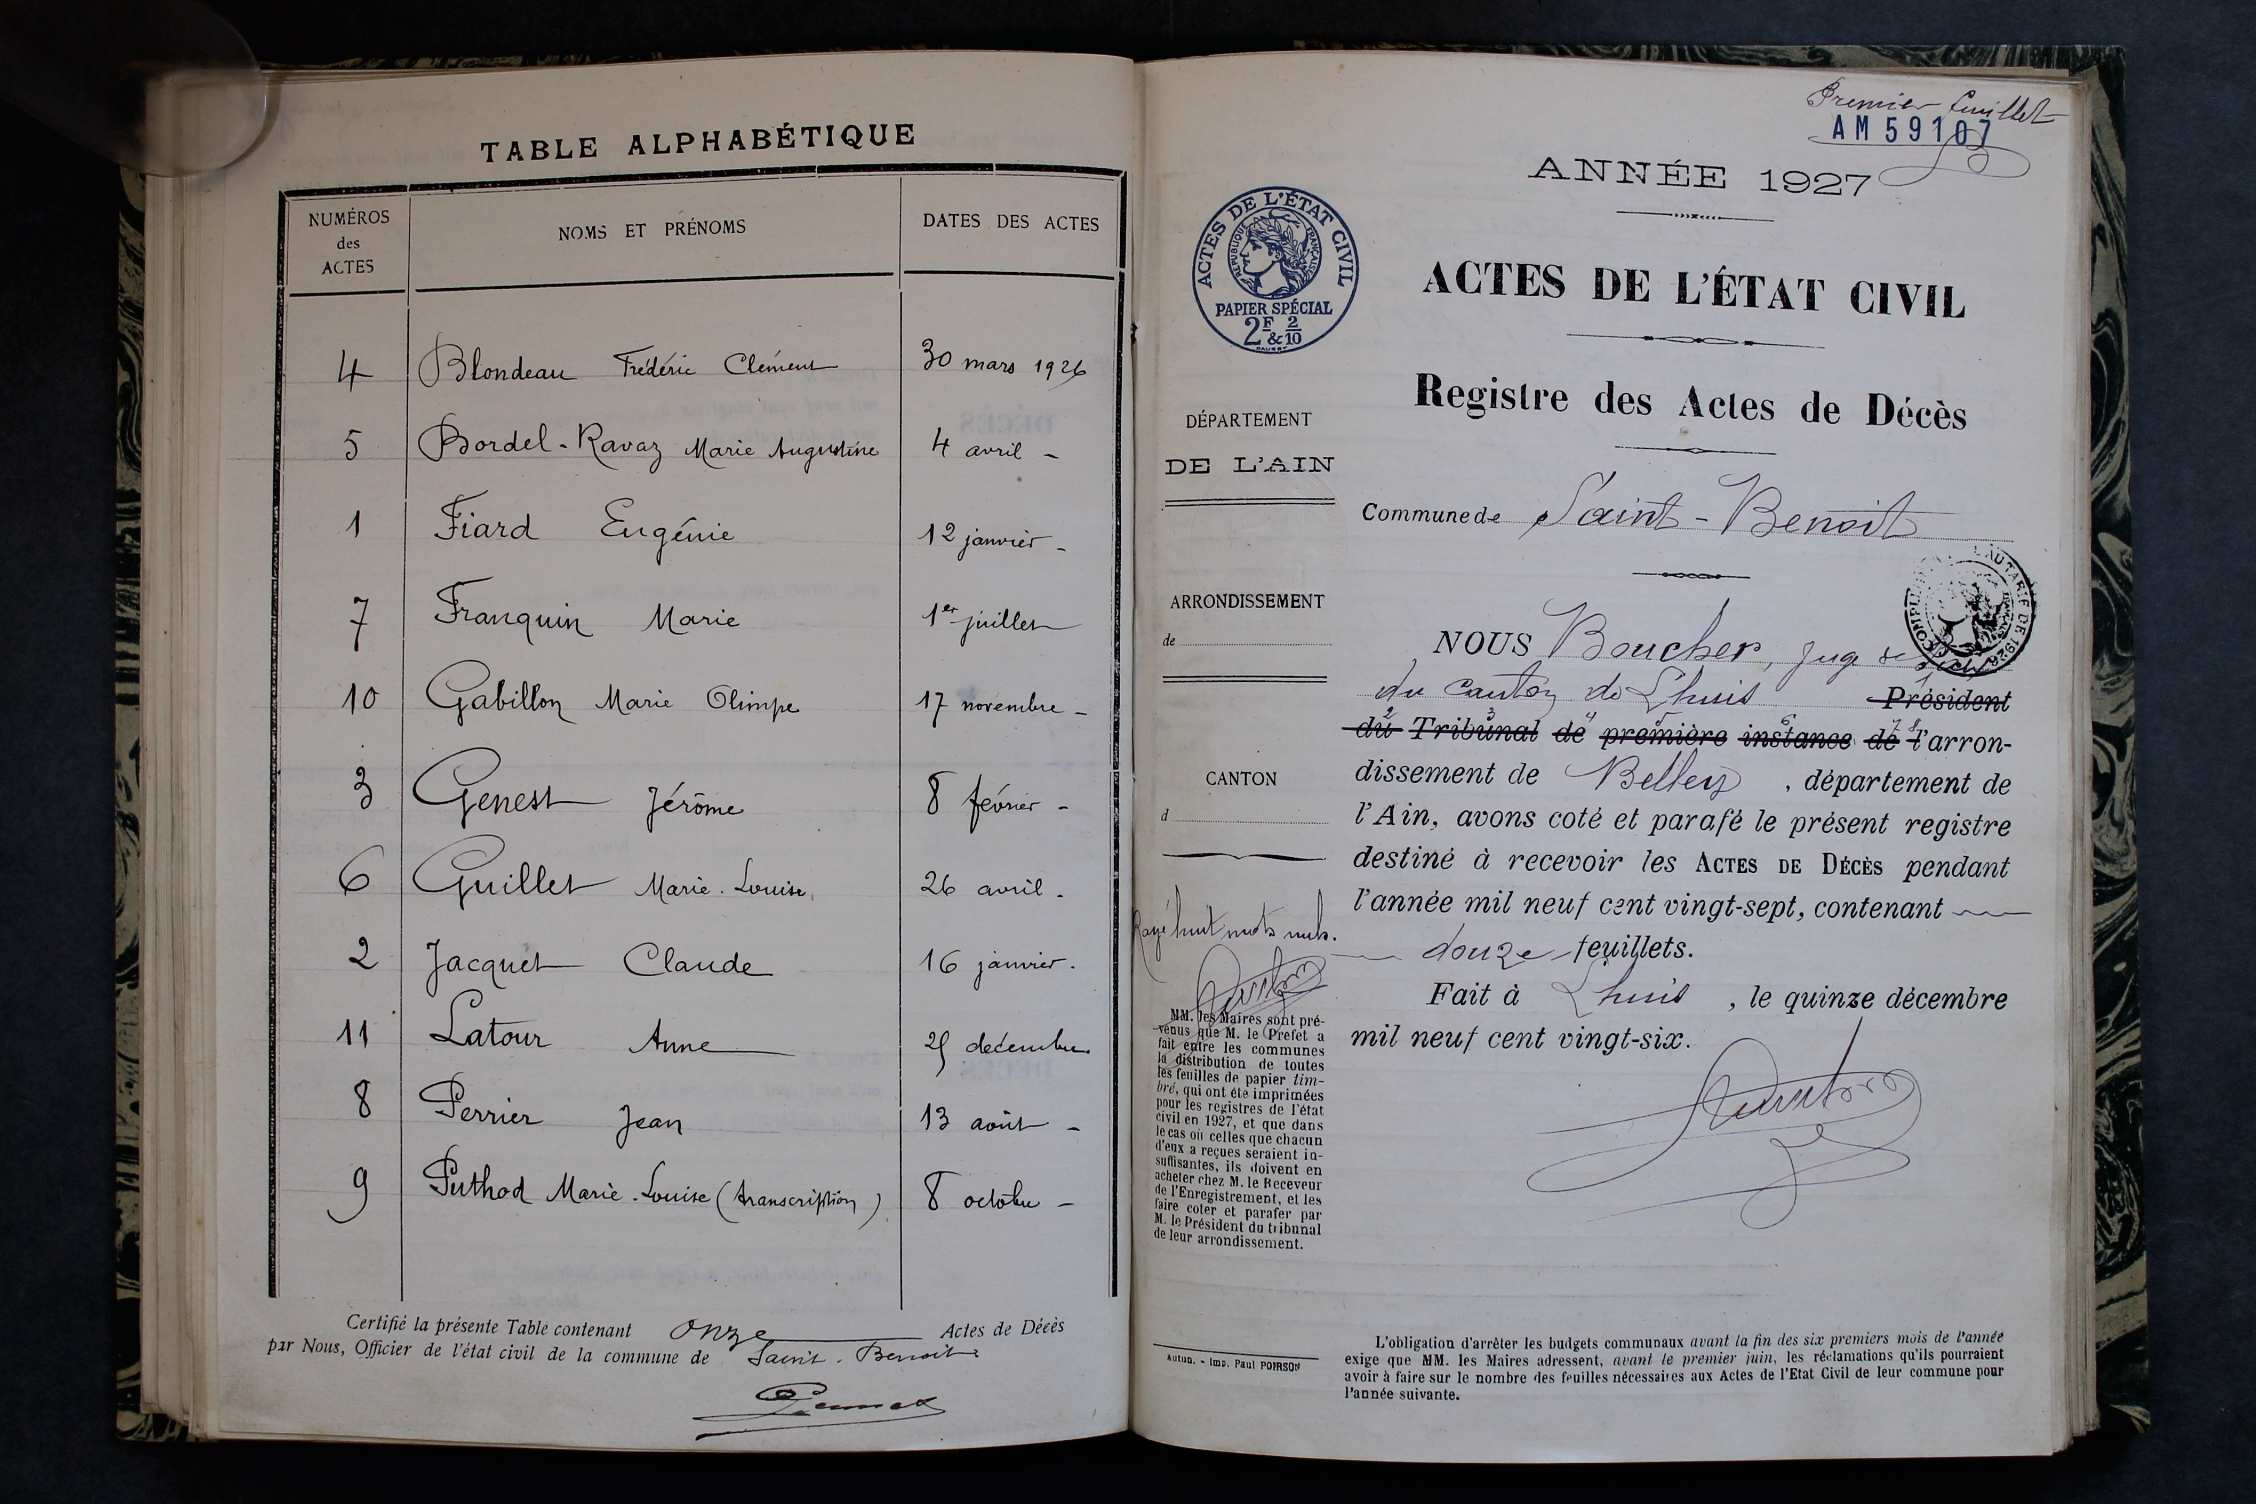 TABLE ALPHABÉTIQUE
NUMÉROS des ACTES
NOMS ET PRÉNOMS
DATES DES ACTES
4 Blondeau Frédéric Clément 30 mars 1926
5 Bordel-Ravaz Marie Augustine 4 avril -
1 Fiard Eugénie 12 janvier -
7 Franquin Marie 1er juillet
10 Gabillon Marie Olimpe 17 novembre -
3 Genest Jérôme 8 février -
6 Guillet Marie-Louise 26 avril -
2 Jacquet Claude 16 janvier -
11 Latour Anne décembre
8 Perrier Jean 13 août -
9 Puthod Marie-Louise (transcription) 8 octobre -
Certifié la présente Table contenant onze Actes de Décès
par Nous, Officier de l'état civil de la commune de Saint-Benoit
Premier feuillet
AM 59107
ANNÉE 1927
ACTES DE L'ÉTAT CIVIL
RÉPUBLIQUE FRANÇAISE
PAPIER SPÉCIAL
2F & 2/10
ACTES DE L'ÉTAT CIVIL
Registre des Actes de Décès
DÉPARTEMENT
DE L'AIN
Commune de Saint-Benoit
ARRONDISSEMENT
de
CANTON
d
NOUS Boucher, juge de
du canton de Lhuis Président
du Tribunal de première instance de l'arron-
dissement de Belley, département de
l'Ain, avons coté et parafé le présent registre
destiné à recevoir les ACTES DE DÉCÈS pendant
l'année mil neuf cent vingt-sept, contenant
douze feuillets.
Fait à Lhuis, le quinze décembre
mil neuf cent vingt-six.
Rayé huit mots nuls.
MM. les Maires sont pré-
venus que M. le Préfet a
fait entre les communes
la distribution de toutes
les feuilles de papier tim-
bré, qui ont été imprimées
pour les registres de l'état
civil en 1927, et que dans
le cas où celles que chacun
d'eux a reçues seraient in-
suffisantes, ils doivent en
acheter chez M. le Receveur
de l'Enregistrement, et les
faire coter et parafer par
M. le Président du tribunal
de leur arrondissement.
Autun. - Imp. Paul POIRSON
L'obligation d'arrêter les budgets communaux avant la fin des six premiers mois de l'année
exige que MM. les Maires adressent, avant le premier juin, les réclamations qu'ils pourraient
avoir à faire sur le nombre des feuilles nécessaires aux Actes de l'Etat Civil de leur commune pour
l'année suivante.